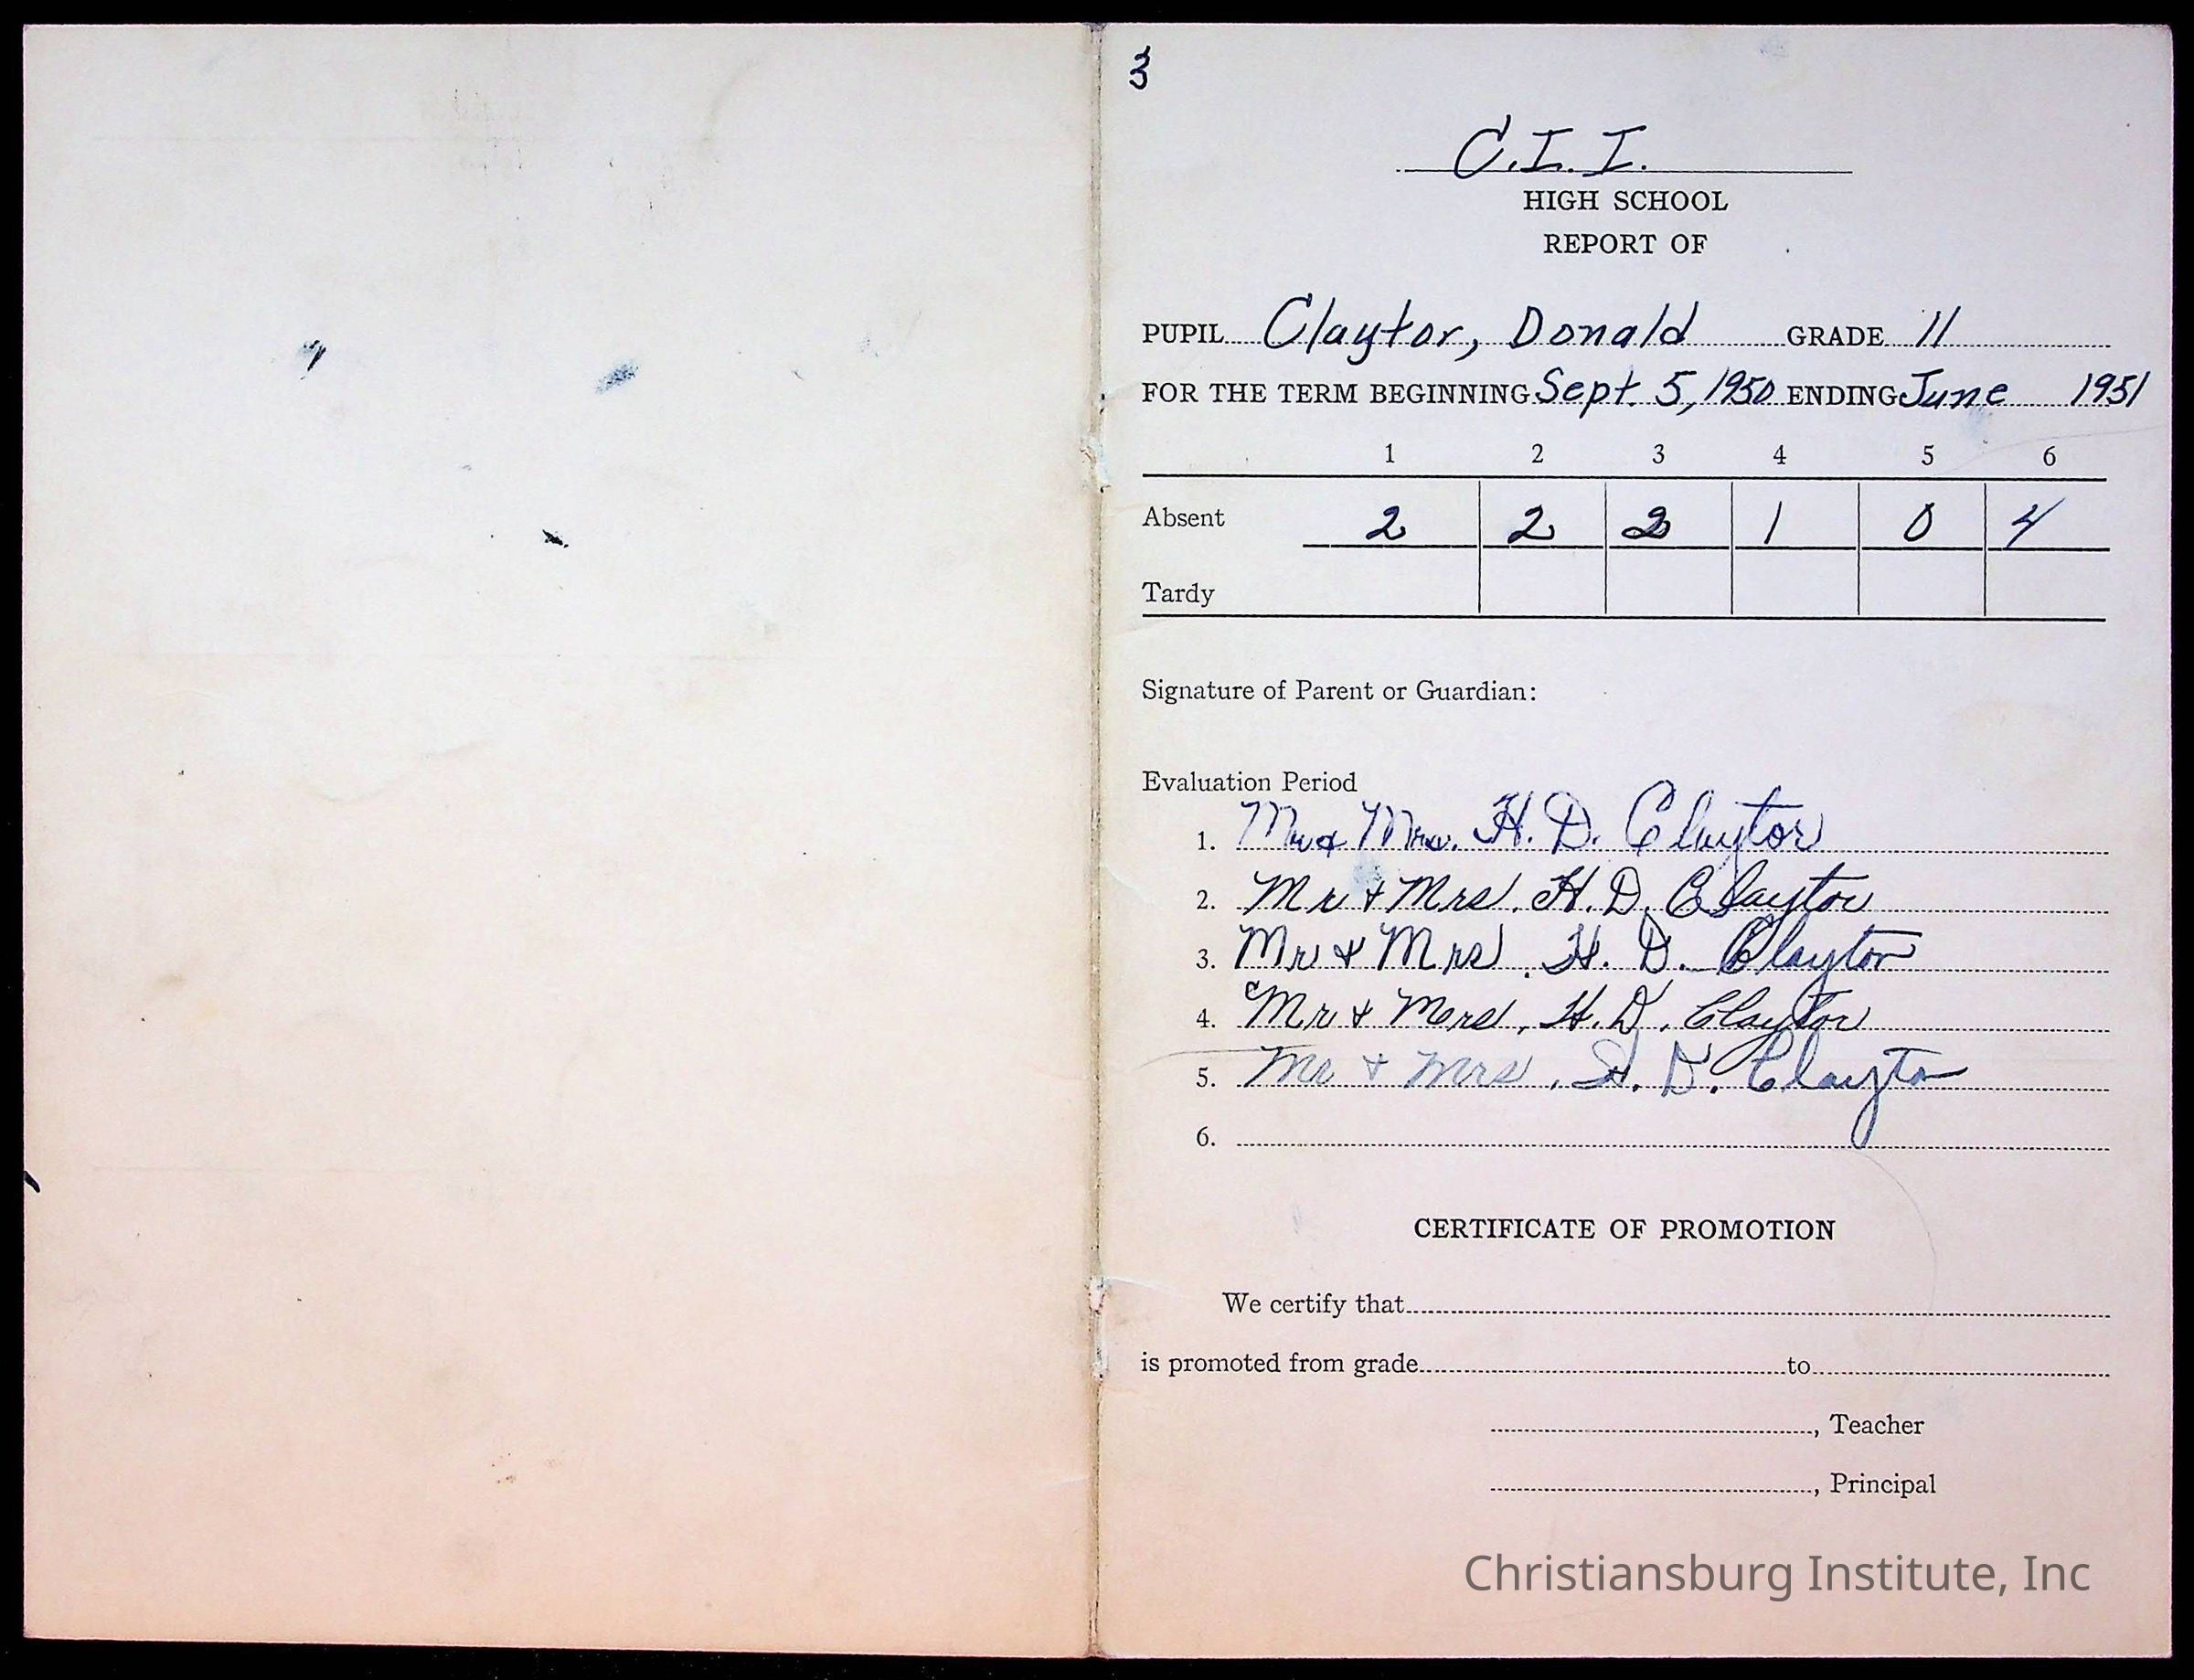 3
C.I.I.
HIGH SCHOOL
REPORT OF
PUPIL Claytor, Donald GRADE 11
FOR THE TERM BEGINNING Sept. 5, 1950 ENDING June 1951
1 2 3 4 5 6
Absent 2 2 2 1 0 4
Tardy
Signature of Parent or Guardian:
Evaluation Period
1. Mr & Mrs. H. D. Claytor
2. Mr + Mrs. H. D. Claytor
3. Mr & Mrs. H. D. Claytor
4. Mr & Mrs. H. D. Claytor
5. Mr + Mrs. H. D. Claytor
6.
CERTIFICATE OF PROMOTION
We certify that
is promoted from grade to
, Teacher
, Principal
Christiansburg Institute, Inc